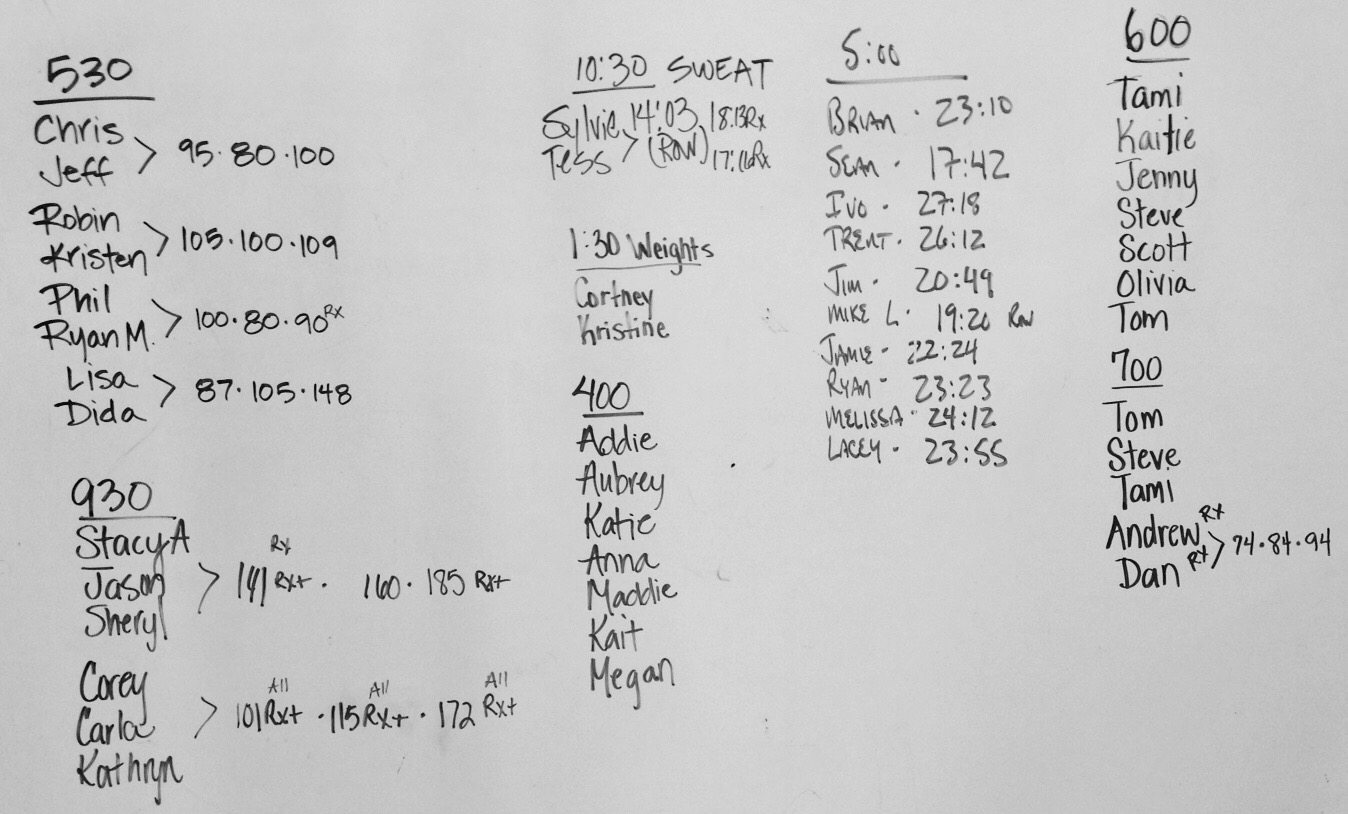 530
Chris
Jeff > 95·80·100
Robin
Kristen > 105·100·109
Phil
Ryan M. > 100·80·90 Rx
Lisa
Dida > 87·105·148
930
Stacy A
Jason > 141 Rx+ Rx · 160 · 185 Rx+
Sheryl
Corey
Carla > 101 Rx+ All · 115 Rx+ All · 172 Rx+ All
Kathryn
10:30 SWEAT
Sylvie 14:03 18:13 Rx
Tess > (ROW) 17:16 Rx
1:30 Weights
Cortney
Kristine
400
Addie
Aubrey
Katie
Anna
Maddie
Kait
Megan
5:00
BRIAN · 23:10
SEAN · 17:42
IVO · 27:18
TRENT · 26:12
JIM · 20:49
MIKE L · 19:20 Row
JAMIE - 22:24
RYAN - 23:23
MELISSA · 24:12
LACEY - 23:55
600
Tami
Kaitie
Jenny
Steve
Scott
Olivia
Tom
700
Tom
Steve
Tami
Andrew Rx
Dan Rx > 74·84·94